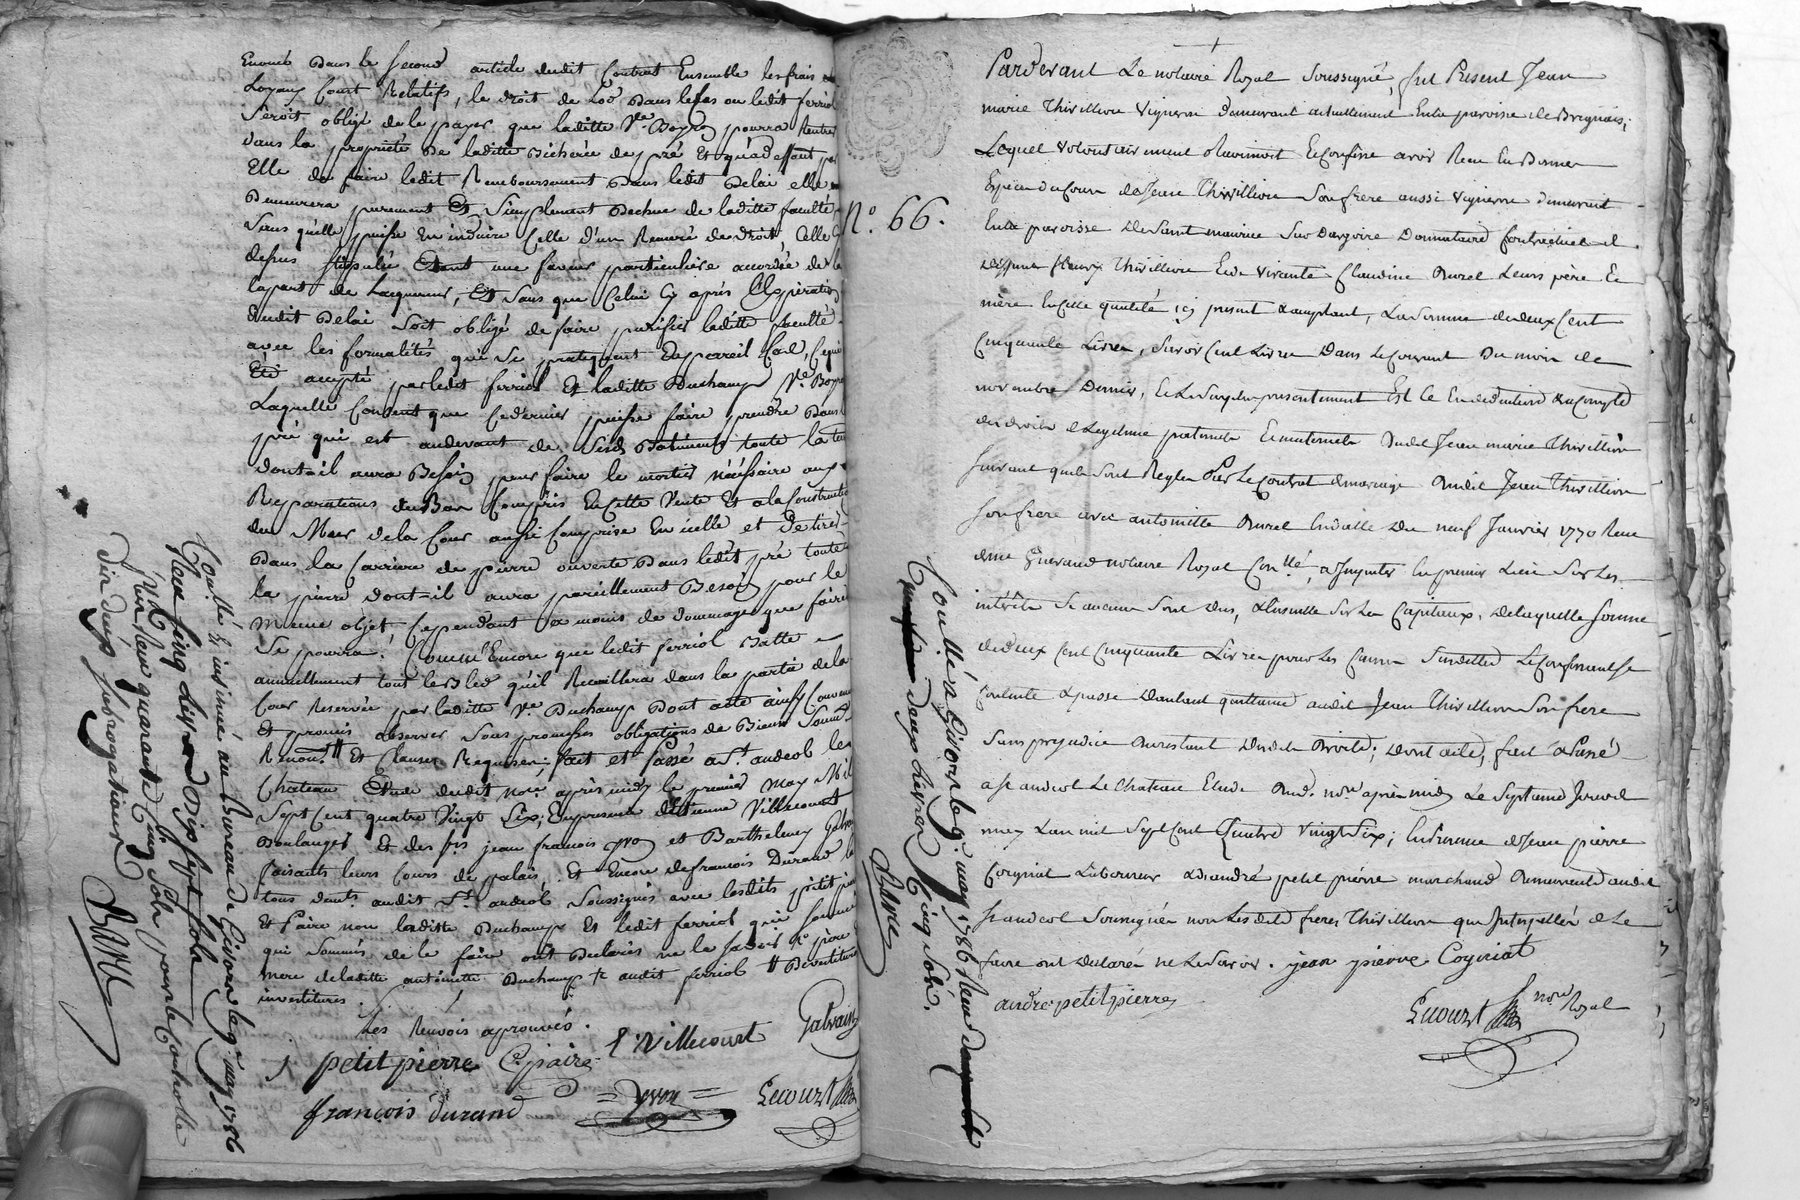 Enoncé dans le second article dudit Contrat Ensemble les frais
Loyaux Cout Relatifs, le droit de Lod dans le Cas ou ledit ferriol
seroit obligé de le payer que laditte Ve. Boyron pourra Rentrer
dans la propriété de laditte Bicherée de pré Et qu'a deffaut par
Elle de faire ledit Remboursement dans ledit delai elle
Demeurera purement Et Simplement dechue de laditte faculté
sans qu'elle puisse En induire Celle d'un Remeré de droit Celle Cy
dessus stipulée Etant une faveur particulière accordée de
la part de Lacquereur, Et sans que Celui Cy après L'Expiration
dudit Delai soit obligé de faire purifier laditte faculté
avec les formalités qui se pratiquent En pareil Cas, Ce qui
Eté accepté par ledit ferriol Et laditte Duchamp Ve. Boyron
Laquelle Consent que Ce dernier puisse faire prendre dans
pré qui est audevant de ses Batiments toute la terre
dont-il aura Besoin pour faire le mortier nécéssaire aux
Reparations du Compris En Cette Vente Et a la Construction
du Mur de la Cour aussi Comprise En icelle et De tirer
Dans la Carriere de pierre ouverte Dans ledit pré toute
la pierre dont-il aura pareillement Besoin pour le
meme objet, Cependant a moins de dommages que faire
se pourra. Convenu Encore que ledit ferriol Batte
annuellement tout le Bled qu'il Recueillera dans la partie de la
Cour Reservée par laditte Ve. Duchamp Dont acte ainsy Convenu
Et promis observer sous promesses obligations de Biens
Et Clauses Requises; fait et passé a St. andeol le
Chateau Etude dudit nore. après midy le premier may Mil
Sept Cent quatre Vingt Six; En presence d'Etienne Villecourt
Boulanger Et des srs jean francois yvon et Barthelemy Galvain
faisants leurs Cours de palais. Et Encore de francois Durand
tous deuts. audit St. andeol Soussignés avec lesdits petit pierre
Et Paire non laditte Duchamp Et ledit ferriol qui
qui sommés de le faire ont Declarés ne le savoir
mere de laditte antoinette Duchamp audit ferriol
investitures.
Les Renvois aprouvés.
petit pierre C. paire E. Villecourt Galvain
françois durand yvon Lecourt
Conllé Et insinué au Bureau de Givors le 9e. may 1786
Reçu Cinq Livres Dix Sept Sols
Plus Reçu quarante Cinq Sols pour le Controle
BARC
N°. 66.
Pardevant Le notaire Royal Soussigné, fut Present Jean
marie Thivillion Vigneron demeurant actuellement En la paroisse de Brignais;
Lequel volontairement Reconnoit Et Confesse avoir Recu En Bonnes
Espèces du Cours de Jean Thivillion son frere aussi Vigneron demeurant
En la paroisse de Saint maurice Sur Dargoire Donnataire Contractuel de
deffunt fleury Thivillion Et de vivante Claudine Murel Leurs père Et
mère En Cette qualité icy present acceptant, La somme de deux Cent
Cinquante Livres, Savoir Cent Livres Dans le Courant du mois de
novembre Dernier, Et Le Surplus presentement Et Ce En deduction & a Compte
des droits de Legitime paternels Et maternels dudit Jean marie Thivillion
suivant quils sont Reglés Par Le Contrat de mariage dudit Jean Thivillion
son frere avec antoinette Murel En datte du neuf Janvier 1770 Recu
me. Guerand notaire Royal Conllé, a Imputer En premier Lieu Sur les
intérêts Si aucuns Sont dus, & Ensuite sur les Capitaux. De laquelle somme
de deux Cent Cinquante Livres pour les Causes Susdittes Le Confessant se
Contente & passe D'autant quittance audit Jean Thivillion Son frere
Sans prejudice du restant desdits droits; Dont acte, fait & Passé
a St andeol Le Chateau Etude dud. nore. après midy Le Septieme Jour de
may L'an mil Sept Cent Quatre Vingt Six; En Presence de Jean pierre
Coginiat Laboureur & d'andré petit pierre marchand demeurant audit
St andeol Soussignés non Lesdits freres Thivillion qui Interpellés de Le
faire ont declarés ne Le Savoir. jean pierre Coginiat
andre petit pierre Lecourt nore Royal
Conllé a Givors le 9e. may 1786 Reçu
deux Livres Cinq Sols.
BARC